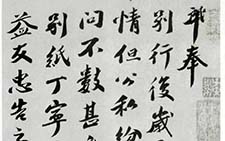 奉
別行後歲
情但公私紛
問不數甚
別紙丁寧
益友忠告